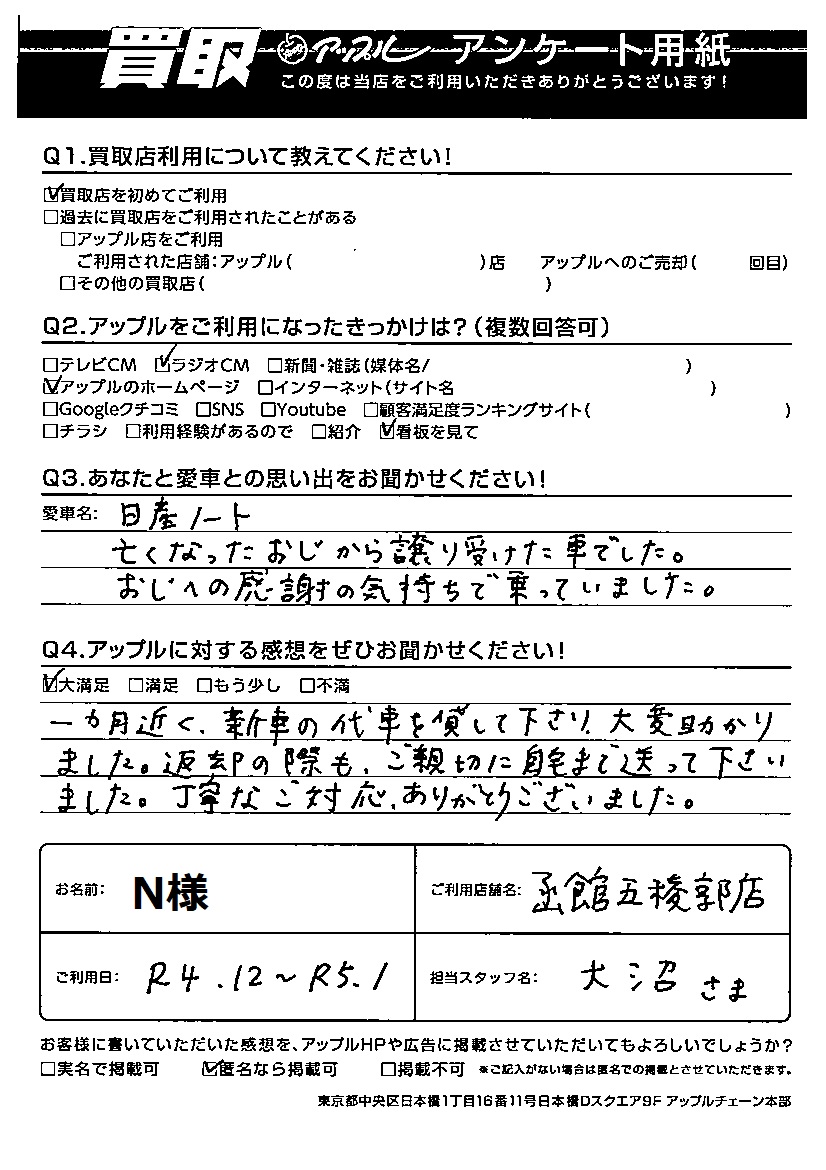 買取 アップル アンケート用紙
この度は当店をご利用いただきありがとうございます!
Q1.買取店利用について教えてください!
☑買取店を初めてご利用
□過去に買取店をご利用されたことがある
□アップル店をご利用
ご利用された店舗:アップル( )店 アップルへのご売却( 回目)
□その他の買取店( )
Q2.アップルをご利用になったきっかけは?(複数回答可)
□テレビCM ☑ラジオCM □新聞・雑誌(媒体名/ )
☑アップルのホームページ □インターネット(サイト名 )
□Googleクチコミ □SNS □Youtube □顧客満足度ランキングサイト( )
□チラシ □利用経験があるので □紹介 ☑看板を見て
Q3.あなたと愛車との思い出をお聞かせください!
愛車名: 日産ノート
亡くなったおじから譲り受けた車でした。
おじへの感謝の気持ちで乗っていました。
Q4.アップルに対する感想をぜひお聞かせください!
☑大満足 □満足 □もう少し □不満
一カ月近く、新車の代車を貸して下さり、大変助かり
ました。返却の際も、ご親切に自宅まで送って下さい
ました。丁寧なご対応、ありがとうございました。
お名前: N様 ご利用店舗名: 函館五稜郭店
ご利用日: R4.12～R5.1 担当スタッフ名: 大沼さま
お客様に書いていただいた感想を、アップルHPや広告に掲載させていただいてもよろしいでしょうか?
□実名で掲載可 ☑匿名なら掲載可 □掲載不可 ※ご記入がない場合は匿名での掲載とさせていただきます。
東京都中央区日本橋1丁目16番11号日本橋Dスクエア9F アップルチェーン本部